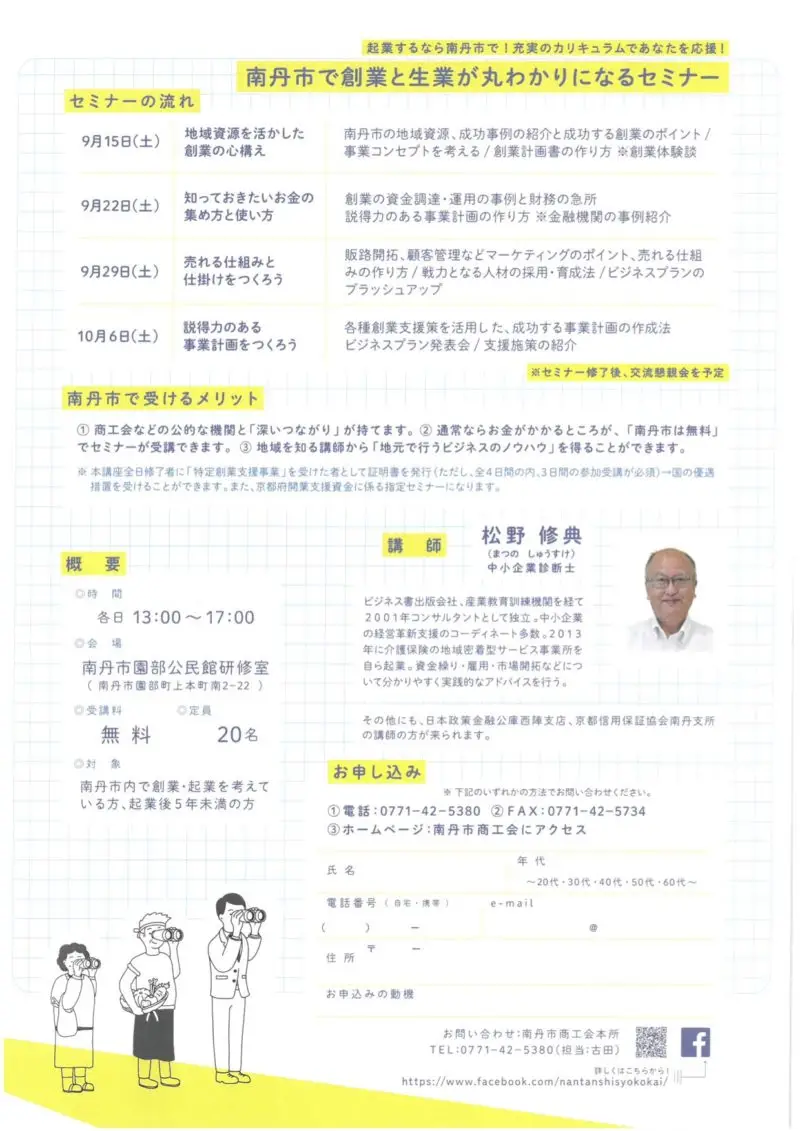 起業するなら南丹市で！充実のカリキュラムであなたを応援！
南丹市で創業と生業が丸わかりになるセミナー
セミナーの流れ
9月15日(土)
地域資源を活かした
創業の心構え
南丹市の地域資源、成功事例の紹介と成功する創業のポイント /
事業コンセプトを考える / 創業計画書の作り方 ※創業体験談
9月22日(土)
知っておきたいお金の
集め方と使い方
創業の資金調達・運用の事例と財務の急所
説得力のある事業計画の作り方 ※金融機関の事例紹介
9月29日(土)
売れる仕組みと
仕掛けをつくろう
販路開拓、顧客管理などマーケティングのポイント、売れる仕組
みの作り方 / 戦力となる人材の採用・育成法 / ビジネスプランの
ブラッシュアップ
10月6日(土)
説得力のある
事業計画をつくろう
各種創業支援策を活用した、成功する事業計画の作成法
ビジネスプラン発表会 / 支援施策の紹介
※セミナー修了後、交流懇親会を予定
南丹市で受けるメリット
① 商工会などの公的な機関と「深いつながり」が持てます。② 通常ならお金がかかるところが、「南丹市は無料」
でセミナーが受講できます。③ 地域を知る講師から「地元で行うビジネスのノウハウ」を得ることができます。
※ 本講座全日修了者に「特定創業支援事業」を受けた者として証明書を発行（ただし、全4日間の内、3日間の参加受講が必須）→国の優遇
措置を受けることができます。また、京都府開業支援資金に係る指定セミナーになります。
概 要
◎時 間
各日 13:00～17:00
◎会 場
南丹市園部公民館研修室
（ 南丹市園部町上本町南2-22 ）
◎受講料
◎定員
無 料
20名
◎対 象
南丹市内で創業・起業を考えて
いる方、起業後5年未満の方
講 師
松野 修典
（まつの しゅうすけ）
中小企業診断士
ビジネス書出版会社、産業教育訓練機関を経て
2001年コンサルタントとして独立。中小企業
の経営革新支援のコーディネート多数。2013
年に介護保険の地域密着型サービス事業所を
自ら起業。資金繰り・雇用・市場開拓などにつ
いて分かりやすく実践的なアドバイスを行う。
その他にも、日本政策金融公庫西陣支店、京都信用保証協会南丹支所
の講師の方が来られます。
お申し込み
※ 下記のいずれかの方法でお問い合わせください。
①電話：0771-42-5380 ②FAX：0771-42-5734
③ホームページ：南丹市商工会にアクセス
氏 名
年 代
～20代・30代・40代・50代・60代～
電話番号（ 自宅・携帯 ）
e-mail
（ ） ー
@
住 所
〒 ー
お申込みの動機
お問い合わせ：南丹市商工会本所
TEL：0771-42-5380（担当：古田）
詳しくはこちらから！
https://www.facebook.com/nantanshisyokokai/